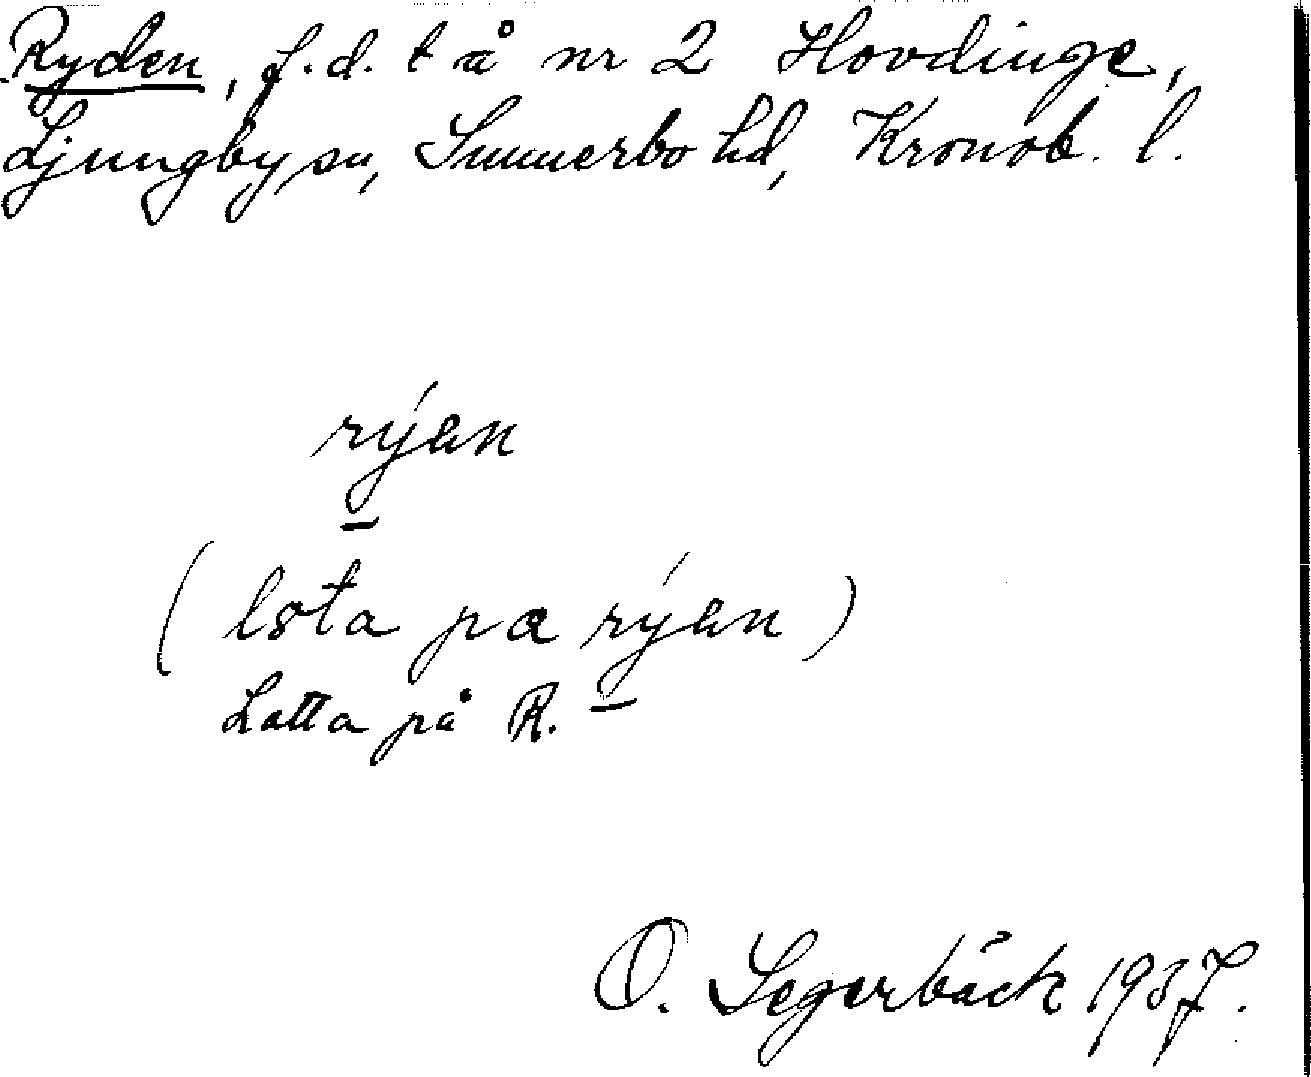 Ryden, f.d. t å nr 2 Hovdinge,
Ljungby sn, Sunnerbo hd, Kronob. l.
rýan
(lota pa rýan)
Lotta på R.
O. Segerbäck 1937.